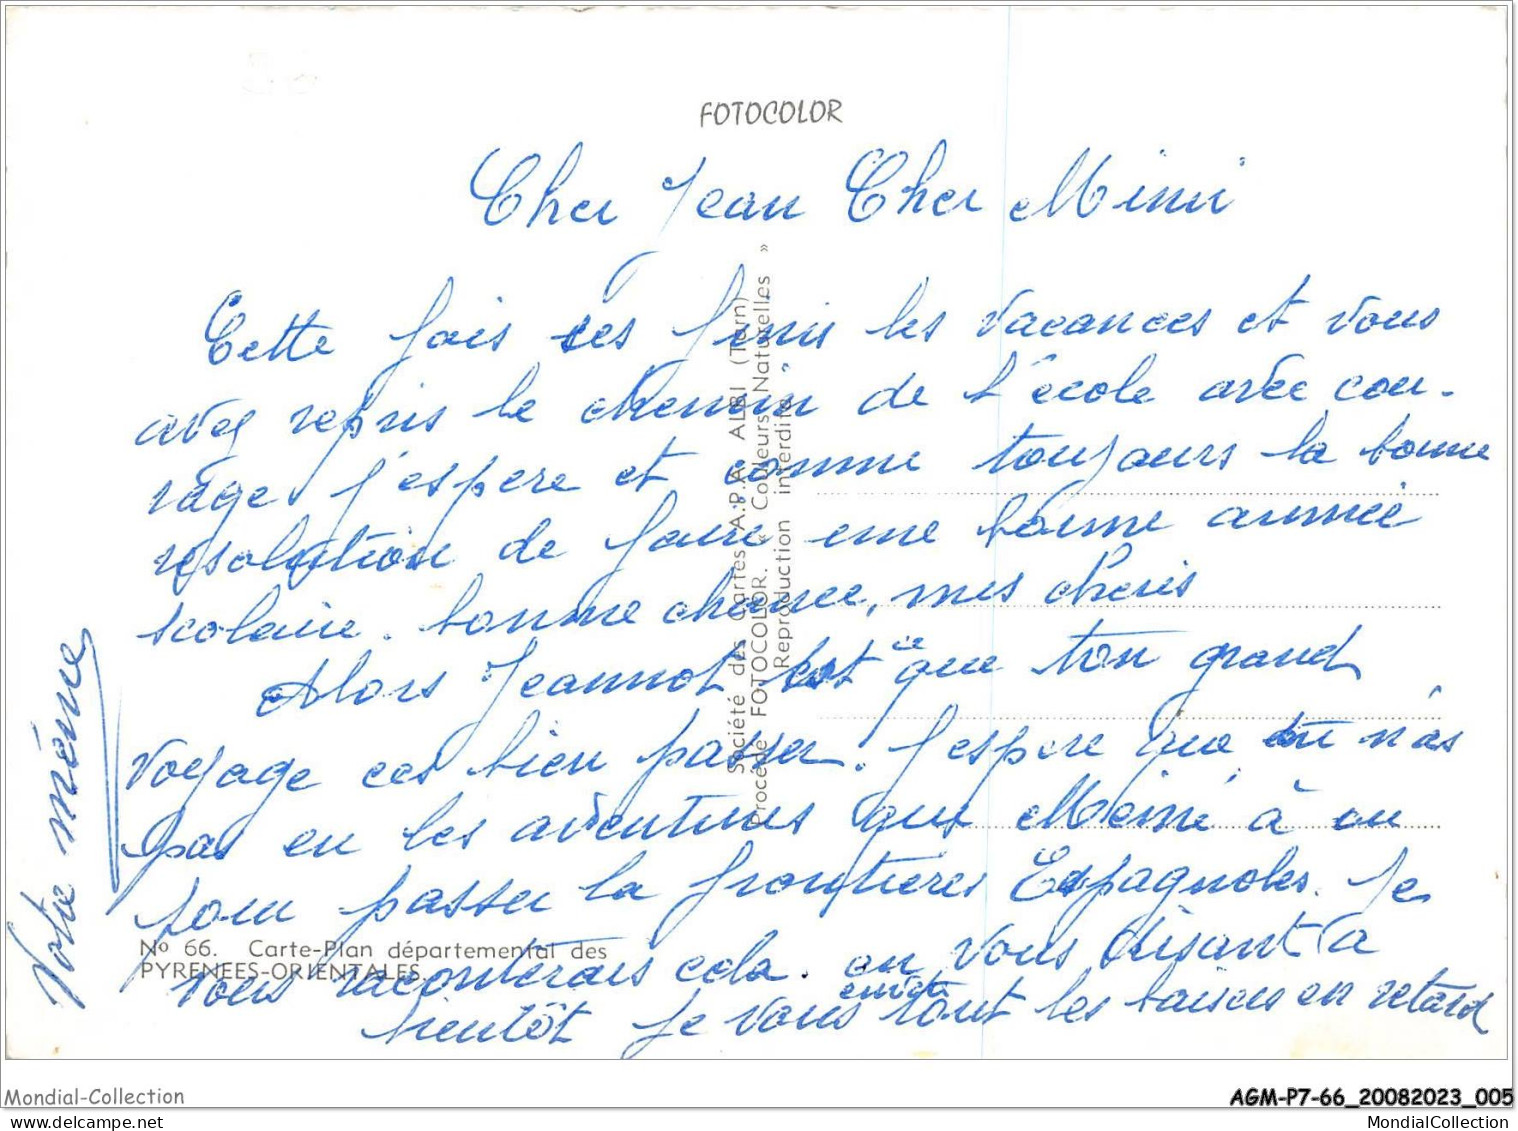 FOTOCOLOR
Cher Jean Cher Mimi
Cette fois ces finis les vacances et vous
avez repris le chemin de l'école avec cou-
rage j'espere et comme toujours la bonne
resolution de faire une bonne année
scolaire. bonne chance, mes cheris
Alors Jeannot est ce que ton grand
voyage ces bien passer. J'espere que tu n'as
pas eu les aventures que Mémé à eu
pour passer la frontieres Espagnoles. Je
vous raconterais cela. en vous disant a
bientôt Je vous envoi tout les baisers en retard
Votre mémé
Société des Cartes A.P.A. ALBI (Tarn)
Procédé FOTOCOLOR. « Couleurs Naturelles »
Reproduction interdite
Nº 66. Carte-Plan départemental des
PYRENEES-ORIENTALES.
Mondial-Collection
AGM-P7-66_20082023_005
mondial-collection.com
MondialCollection